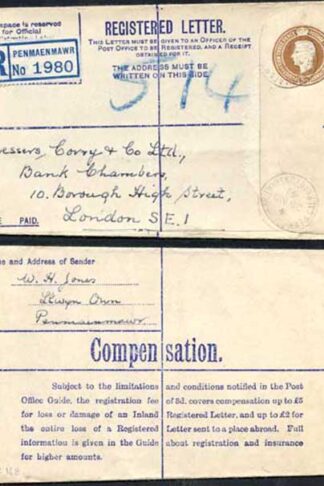 space is reserved
for Official
REGISTERED LETTER.
THIS LETTER MUST BE GIVEN TO AN OFFICER OF THE
POST OFFICE TO BE REGISTERED, AND A RECEIPT
OBTAINED FOR IT.
THE ADDRESS MUST BE
WRITTEN ON THIS SIDE.
R PENMAENMAWR
No 1980
514
essers, Corry & Co Ltd.,
Bank Chambers,
10. Borough High Street,
London S.E.1
E PAID.
e and Address of Sender
W. H. Jones
Llwyn Onn
Penmaenmawr
Compensation.
Subject to the limitations and conditions notified in the Post
Office Guide, the registration fee of 3d. covers compensation up to £5
for loss or damage of an Inland Registered Letter, and up to £2 for
the entire loss of a Registered Letter sent to a place abroad. Full
information is given in the Guide about registration and insurance
for higher amounts.